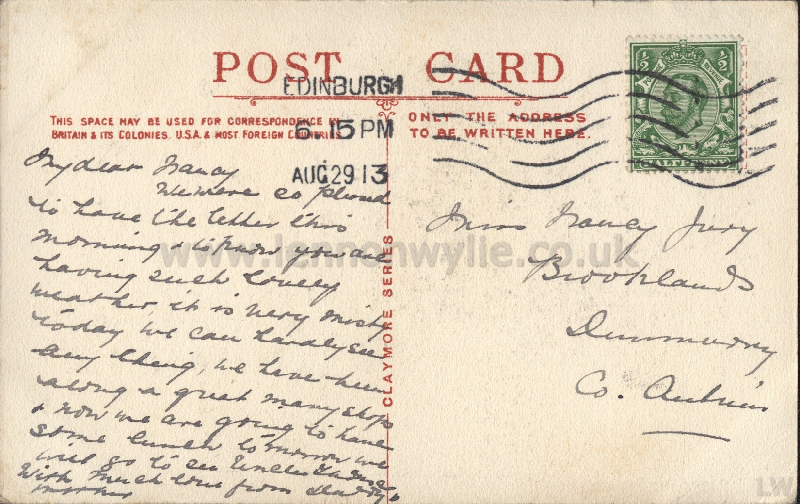 POST CARD
EDINBURGH
6 15 PM
AUG 29 13
THIS SPACE MAY BE USED FOR CORRESPONDENCE IN
BRITAIN & ITS COLONIES. U.S.A. & MOST FOREIGN COUNTRIES.
ONLY THE ADDRESS
TO BE WRITTEN HERE.
HALFPENNY
CLAYMORE SERIES
My dear Nancy
We were so pleased
to have the letter this
morning & to know you are
having such lovely
weather, it is very misty
today we can hardly see
any thing, we have been
along a great many shops
& now we are going to have
some lunch tomorrow we
will go to see Uncle
With much love from Daddy &
Miss Nancy Jury
Brooklands
Dunmurry
Co. Antrim
www.lennonwylie.co.uk
LW